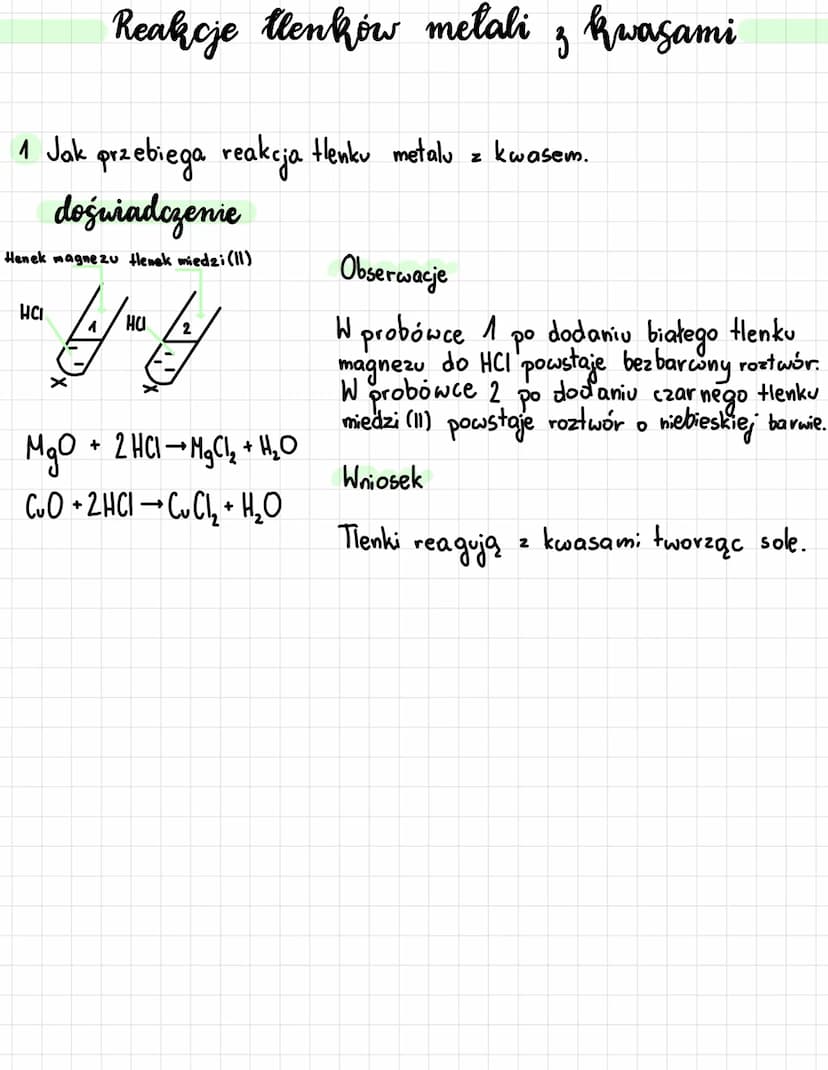 Reakcje tlenków metali z kwasami
1 Jak przebiega reakcja tlenku metalu z kwasem.
doświadczenie
tlenek magnezu tlenek miedzi (II)
HCl 1 HCl 2
MgO + 2HCl → MgCl₂ + H₂O
CuO + 2HCl → CuCl₂ + H₂O
Obserwacje
W probówce 1 po dodaniu białego tlenku
magnezu do HCl powstaje bezbarwny roztwór.
W probówce 2 po dodaniu czarnego tlenku
miedzi (II) powstaje roztwór o niebieskiej barwie.
Wniosek
Tlenki reagują z kwasami tworząc sole.